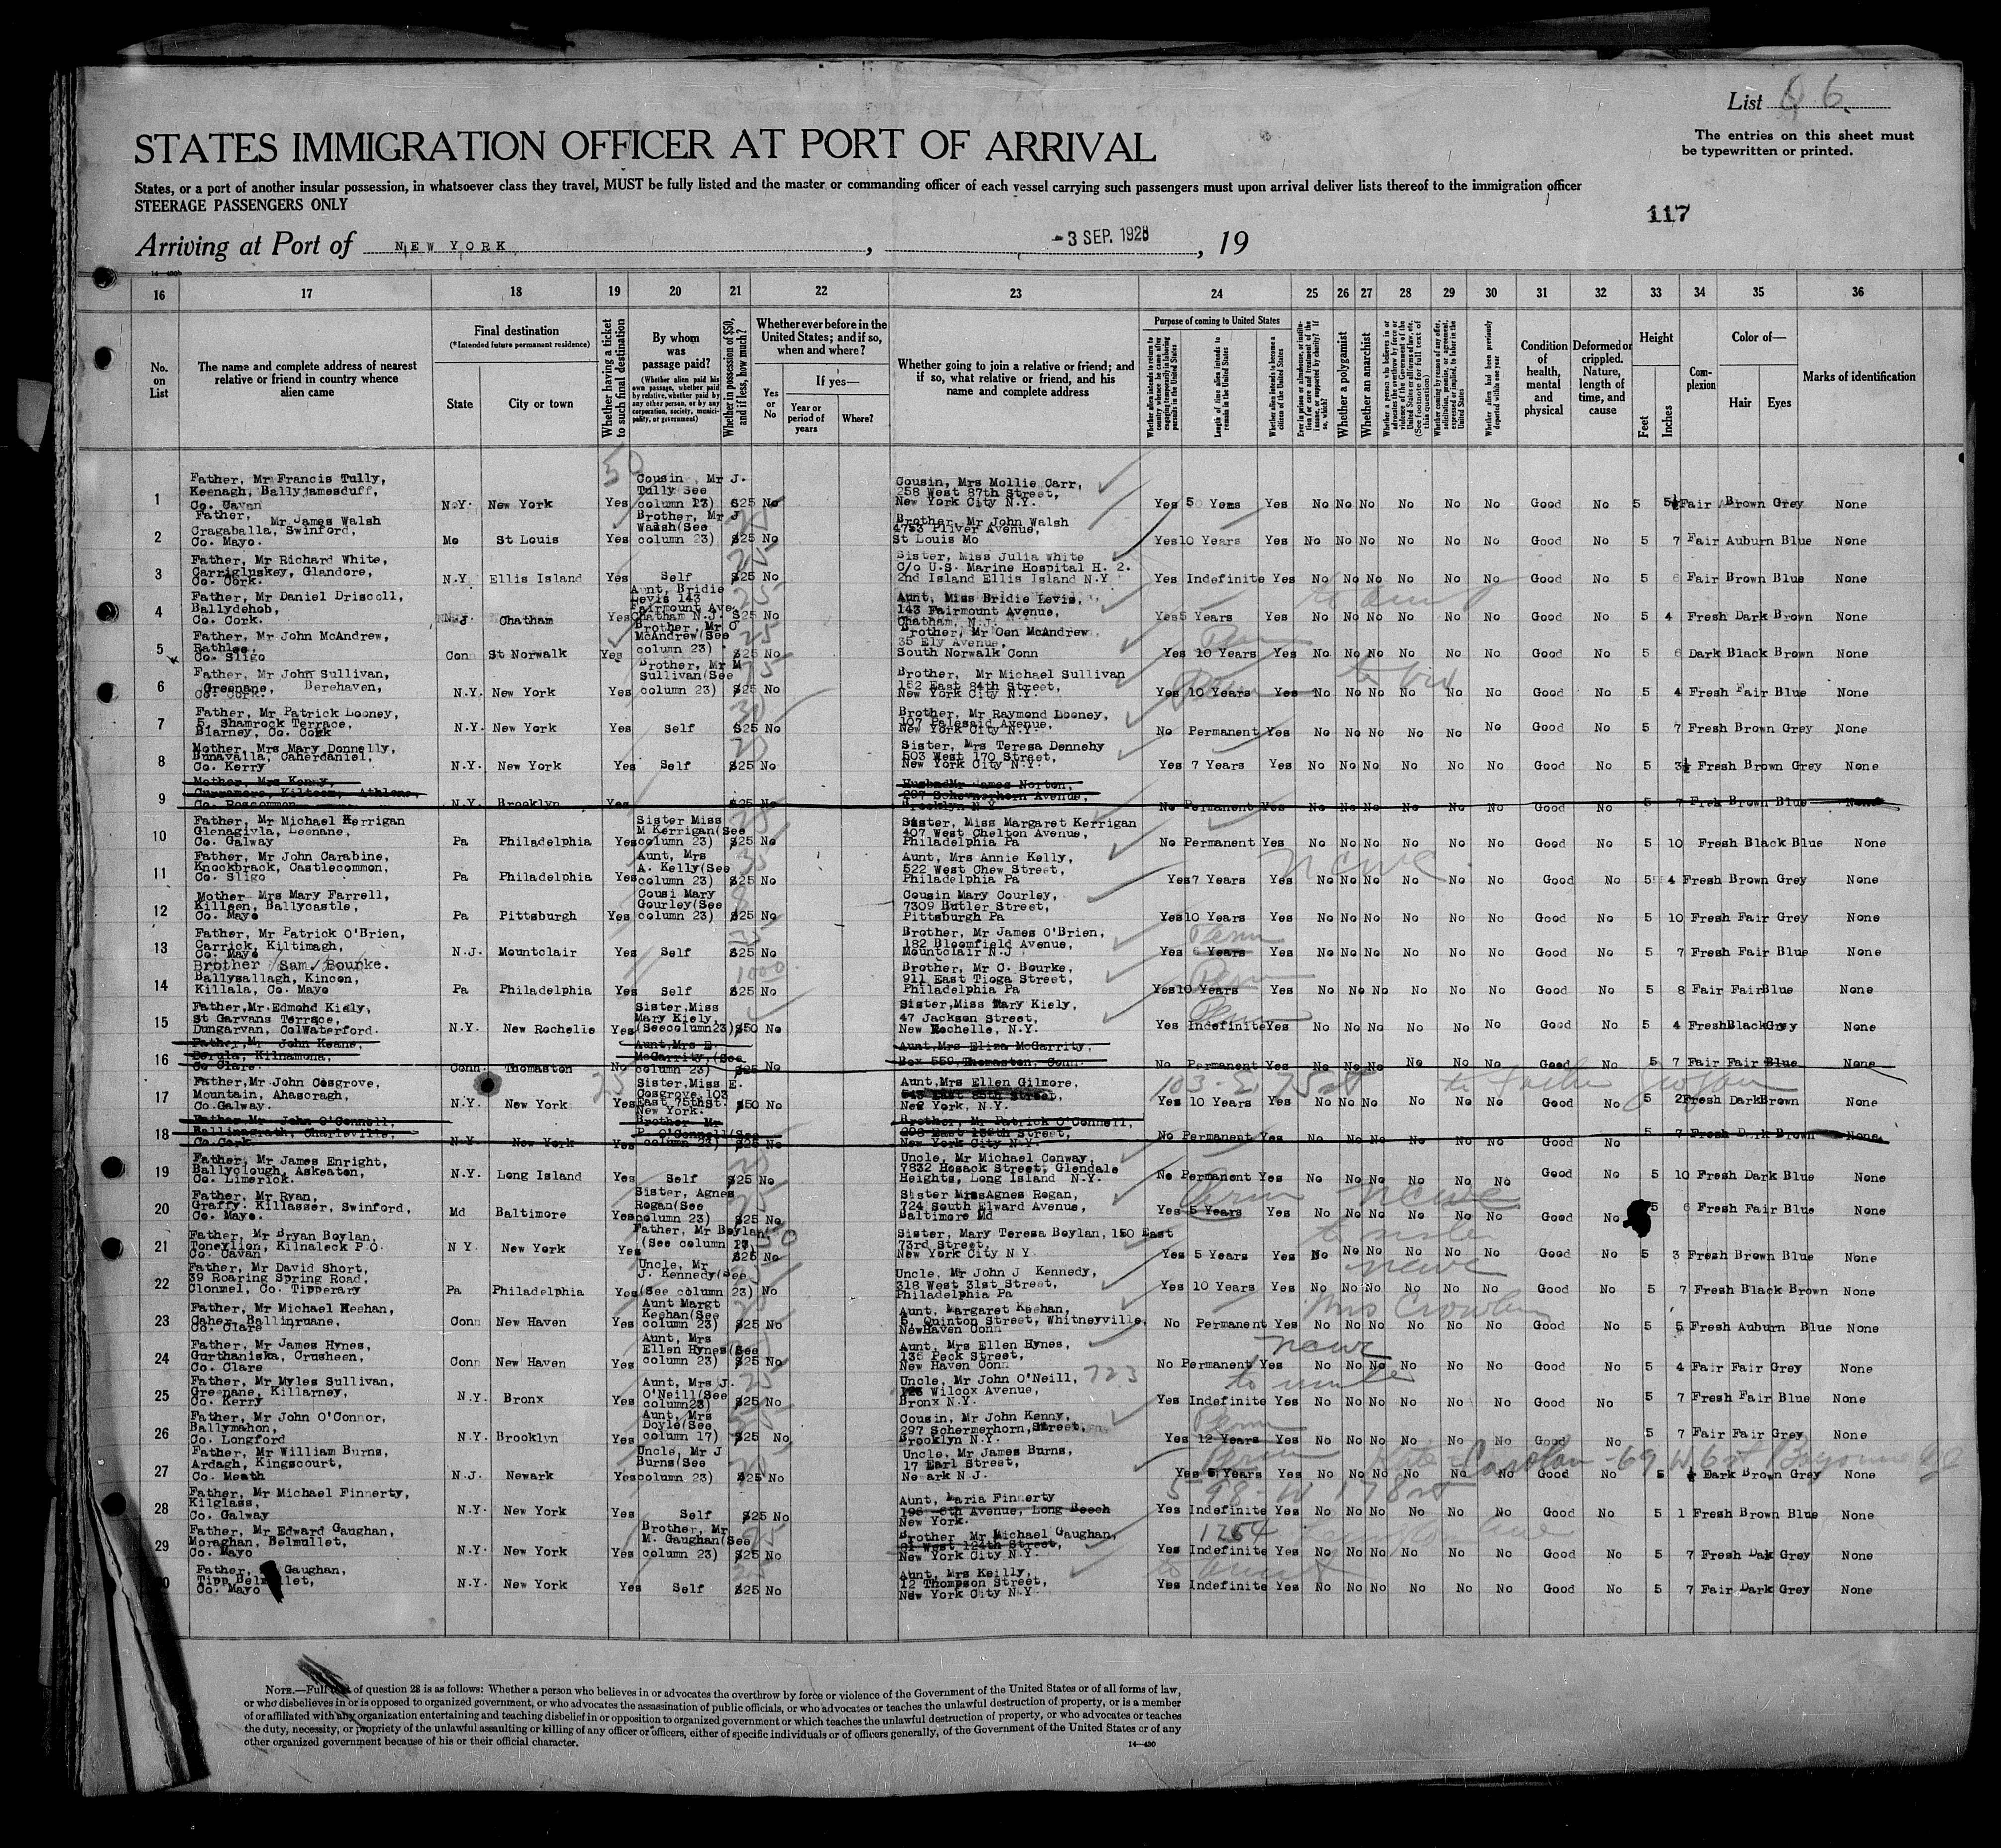 List 6
STATES IMMIGRATION OFFICER AT PORT OF ARRIVAL
The entries on this sheet must
be typewritten or printed.
States, or a port of another insular possession, in whatsoever class they travel, MUST be fully listed and the master or commanding officer of each vessel carrying such passengers must upon arrival deliver lists thereof to the immigration officer
STEERAGE PASSENGERS ONLY
117
Arriving at Port of NEW YORK, -3 SEP. 1928, 19
16 17 18 19 20 21 22 23 24 25 26 27 28 29 30 31 32 33 34 35 36
No. on List
The name and complete address of nearest relative or friend in country whence alien came
Final destination
(*Intended future permanent residence)
State
City or town
Whether having a ticket to such final destination
By whom was passage paid?
(Whether alien paid his own passage, whether paid by relative, whether paid by any other person, or by any corporation, society, municipality, or government)
Whether in possession of $50, and if less, how much?
Whether ever before in the United States; and if so, when and where?
Yes or No
If yes—
Year or period of years
Where?
Whether going to join a relative or friend; and if so, what relative or friend, and his name and complete address
Purpose of coming to United States
Length of time alien intends to remain in the United States
Whether alien intends to become a citizen of the United States
Whether a polygamist
Whether an anarchist
Condition of health, mental and physical
Deformed or crippled. Nature, length of time, and cause
Height
Feet
Inches
Complexion
Color of—
Hair
Eyes
Marks of identification
1 Father, Mr Francis Tully, Keenagh, Ballyjamesduff, Co. Cavan N.Y. New York Yes Cousin, Mr J. Tully See column 23) $25 No Cousin, Mrs Mollie Carr, 258 West 87th Street, New York City N.Y. Yes 5 Yezs Yes No No No No No No Good No 5 5½ Fair Brown Grey None
2 Father, Mr James Walsh Cragaballa, Swinford, Co. Mayo. Mo St Louis Yes Brother, Mr J Walsh(See column 23) $25 No Brother, Mr John Walsh 4753 Pliver Avenue, St Louis Mo Yes 10 Years Yes No No No No No No Good No 5 7 Fair Auburn Blue None
3 Father, Mr Richard White, Carrigluskey, Glandore, Co. Cork. N.Y Ellis Island Yes Self $25 No Sister, Miss Julia White C/o U.S. Marine Hospital H. 2. 2nd Island Ellis Island N.Y Yes Indefinite Yes No No No No No No Good No 5 6 Fair Brown Blue None
4 Father, Mr Daniel Driscoll, Ballydehob, Co. Cork. N.J Chatham Yes Aunt, Bridie Levis 143 Fairmount Ave. Chatham N.J. $25 No Aunt, Miss Bridie Levis, 143 Fairmount Avenue, Chatham, N.J. Yes 5 Years Yes No No No No No No Good No 5 4 Fresh Dark Brown None
5 Father, Mr John McAndrew, Rathlee, Co. Sligo Conn St Norwalk Yes Brother, Mr O McAndrew(See column 23) $25 No Brother, Mr Oen McAndrew, 35 Ely Avenue, South Norwalk Conn Yes 10 Years Yes No No No No No No Good No 5 6 Dark Black Brown None
6 Father, Mr John Sullivan, Greenane, Berehaven, Co. Cork. N.Y. New York Yes Brother, Mr M Sullivan(See column 23) $25 No Brother, Mr Michael Sullivan 152 East 84th Street, New York City N.Y. Yes 10 Years Yes No No No No No No Good No 5 4 Fresh Fair Blue None
7 Father, Mr Patrick Looney, 5, Shamrock Terrace, Blarney, Co. Cork N.Y. New York Yes Self $25 No Brother, Mr Raymond Looney, 107 Palesaid Avenue, New York City N.Y. No Permanent Yes No No No No No No Good No 5 7 Fresh Brown Grey None
8 Mother, Mrs Mary Donnelly, Bunavalla, Caherdaniel, Co. Kerry N.Y. New York Yes Self $25 No Sister, Mrs Teresa Dennehy 503 West 170 Street, New York City N.Y. Yes 7 Years Yes No No No No No No Good No 5 3½ Fresh Brown Grey None
9 Mother, Mrs Kenny, Curramore, Kilteem, Athlone, Co. Roscommon N.Y. Brooklyn Yes $25 No Husband Mr James Norton, 297 Schermerhorn Avenue, Brooklyn N.Y No Permanent Yes No No No No No No Good No 5 7 Brown Blue None
10 Father, Mr Michael Kerrigan Glenagivla, Leenane, Co. Galway Pa Philadelphia Yes Sister Miss M Kerrigan(See column 23) $25 No Sister, Miss Margaret Kerrigan 407 West Chelton Avenue, Philadelphia Pa No Permanent Yes No No No No No No Good No 5 10 Fresh Black Blue None
11 Father, Mr John Carabine, Knockbrack, Castlecommon, Co. Sligo Pa Philadelphia Yes Aunt, Mrs A. Kelly(See column 23) $25 No Aunt, Mrs Annie Kelly, 522 West Chew Street, Philadelphia Pa Yes 7 Years Yes No No No No No No Good No 5 4 Fresh Brown Grey None
12 Mother Mrs Mary Farrell, Killeen, Ballycastle, Co. Mayo Pa Pittsburgh Yes Cousi Mary Gourley(See column 23) $25 No Cousin Mary Courley, 7309 Butler Street, Pittsburgh Pa Yes 10 Years Yes No No No No No No Good No 5 10 Fresh Fair Grey None
13 Father, Mr Patrick O'Brien, Carrick, Kiltimagh, Co. Mayo N.J. Mountclair Yes Self $25 No Brother, Mr James O'Brien, 182 Bloomfield Avenue, Mountclair N.J Yes 6 Years Yes No No No No No No Good No 5 7 Fresh Fair Blue None
14 Brother Sam. Bourke. Ballysallagh, Kincon, Killala, Co. Mayo Pa Philadelphia Yes Self $25 No Brother, Mr C. Bourke, 911 East Tioga Street, Philadelphia Pa Yes 10 Years Yes No No No No No No Good No 5 8 Fair Fair Blue None
15 Father, Mr. Edmond Kiely, St Garvans Terrace, Dungarvan, Co. Waterford. N.Y. New Rochelle Yes Sister, Miss Mary Kiely, (See column 23) $50 No Sister, Miss Mary Kiely, 47 Jackson Street, New Rochelle, N.Y. Yes Indefinite Yes No No No No No No Good No 5 4 Fresh Black Grey None
16 Father, Mr John Keane, Derula, Kilnamona, Co Clare. Conn. Thomaston No Aunt, Mrs E. McGarrity, (See column 23) $25 No Aunt, Mrs Eliza McGarrity, Box 559, Thomaston, Conn. No Permanent Yes No No No No No No Good No 5 7 Fair Fair Blue None
17 Father, Mr John Cosgrove, Mountain, Ahascragh, Co. Galway. N.Y. New York Yes Sister, Miss E. Cosgrove, 103 East 75th St. New York. $50 No Aunt, Mrs Ellen Gilmore, New York, N.Y. Yes 10 Years Yes No No No No No No Good No 5 2 Fresh Dark Brown None
18 Father Mr John O'Connell, Ballinagrath, Charleville, Co. Cork N.Y. New York Yes Brother Mr P. O'Connell(See column 23) $25 No Brother, Mr Patrick O'Connell, New York City N.Y. No Permanent Yes No No No No No No Good No 5 7 Fresh Dark Brown None
19 Father, Mr James Enright, Ballyclough, Askeaton, Co. Limerick. N.Y. Long Island Yes Self $25 No Uncle, Mr Michael Conway, 7832 Hosack Street, Glendale Heights, Long Island N.Y. No Permanent Yes No No No No No No Good No 5 10 Fresh Dark Blue None
20 Father, Mr Ryan, Graffy. Killasser, Swinford, Co. Mayo. Md Baltimore Yes Sister, Agnes Rogan(See column 23) $25 No Sister Miss Agnes Rogan, 724 South Elward Avenue, Baltimore Md Yes 5 Years Yes No No No No No No Good No 5 6 Fresh Fair Blue None
21 Father, Mr Bryan Boylan, Toneylion, Kilnaleck P.O. Co. Cavan N Y. New York Yes Father, Mr Boylan, (See column 17) $25 No Sister, Mary Teresa Boylan, 150 East 73rd Street, New York City N.Y Yes 5 Years Yes No No No No No No Good No 5 3 Fresh Brown Blue None
22 Father, Mr David Short, 39 Roaring Spring Road, Clonmel, Co. Tipperary Pa Philadelphia Yes Uncle, Mr J. Kennedy(See (See column 23) No Uncle, Mr John J Kennedy, 318 West 31st Street, Philadelphia Pa Yes 10 Years Yes No No No No No No Good No 5 7 Fresh Black Brown None
23 Father, Mr Michael Keehan, Caher, Ballinruane, Co. Clare Conn New Haven Yes Aunt Margt Keehan(See column 23) $25 No Aunt, Margaret Keehan, 5, Quinton Street, Whitneyville, NewHaven Conn No Permanent Yes No No No No No No Good No 5 5 Fresh Auburn Blue None
24 Father, Mr James Hynes, Gurthaniska, Crusheen, Co. Clare Conn New Haven Yes Aunt, Mrs Ellen Hynes(See column 23) $25 No Aunt, Mrs Ellen Hynes, 136 Peck Street, New Haven Conn No Permanent Yes No No No No No No Good No 5 4 Fair Fair Grey None
25 Father, Mr Myles Sullivan, Greenane, Killarney, Co. Kerry N.Y. Bronx Yes Aunt, Mrs J. O'Neill(See column23) $25 No Uncle, Mr John O'Neill, 723 Wilcox Avenue, Bronx N.Y. Yes Indefinite Yes No No No No No No Good No 5 7 Fresh Fair Blue None
26 Father, Mr John O'Connor, Ballymahon, Co. Longford N.Y. Brooklyn Yes Aunt, Mrs Doyle(See column 17) $25 No Cousin, Mr John Kenny, 297 Schermerhorn, Street, Brooklyn N.Y. Yes 12 Years Yes No No No No No No Good No 5 7 Fair Fair Grey None
27 Father, Mr William Burns, Ardagh, Kingscourt, Co. Meath N.J. Newark Yes Uncle, Mr J Burns(See column 23) $25 No Uncle, Mr James Burns, 17 Earl Street, Newark N.J. Yes 5 Years Yes No No No No No No Good No 5 Dark Brown Grey None
28 Father, Mr Michael Finnerty, Kilglass, Co. Galway N.Y. New York Yes Self $25 No Aunt, Maria Finnerty 6th Avenue, Long Beech New York. 598-W 178 st Yes Indefinite Yes No No No No No No Good No 5 1 Fresh Brown Blue None
29 Father, Mr Edward Gaughan, Moraghan, Belmullet, Co. Mayo N.Y. New York Yes Brother, Mr M. Gaughan(See column 23) $25 No Brother Mr Michael Gaughan, 91 West 124th Street, New York City N.Y. 1264 Yes Indefinite Yes No No No No No No Good No 5 7 Fresh Dak Grey None
Father, Gaughan, Tipp Belmullet, Co. Mayo N.Y. New York Yes Self $25 No Aunt, Mrs Keilly, 12 Thompson Street, New York City N.Y. to aunt Yes Indefinite Yes No No No No No No Good No 5 7 Fair Dark Grey None
NOTE.—Full text of question 28 is as follows: Whether a person who believes in or advocates the overthrow by force or violence of the Government of the United States or of all forms of law,
or who disbelieves in or is opposed to organized government, or who advocates the assassination of public officials, or who advocates or teaches the unlawful destruction of property, or is a member
of or affiliated with any organization entertaining and teaching disbelief in or opposition to organized government or which teaches the unlawful destruction of property, or who advocates or teaches
the duty, necessity, or propriety of the unlawful assaulting or killing of any officer or officers, either of specific individuals or of officers generally, of the Government of the United States or of any
other organized government because of his or their official character.
14—430